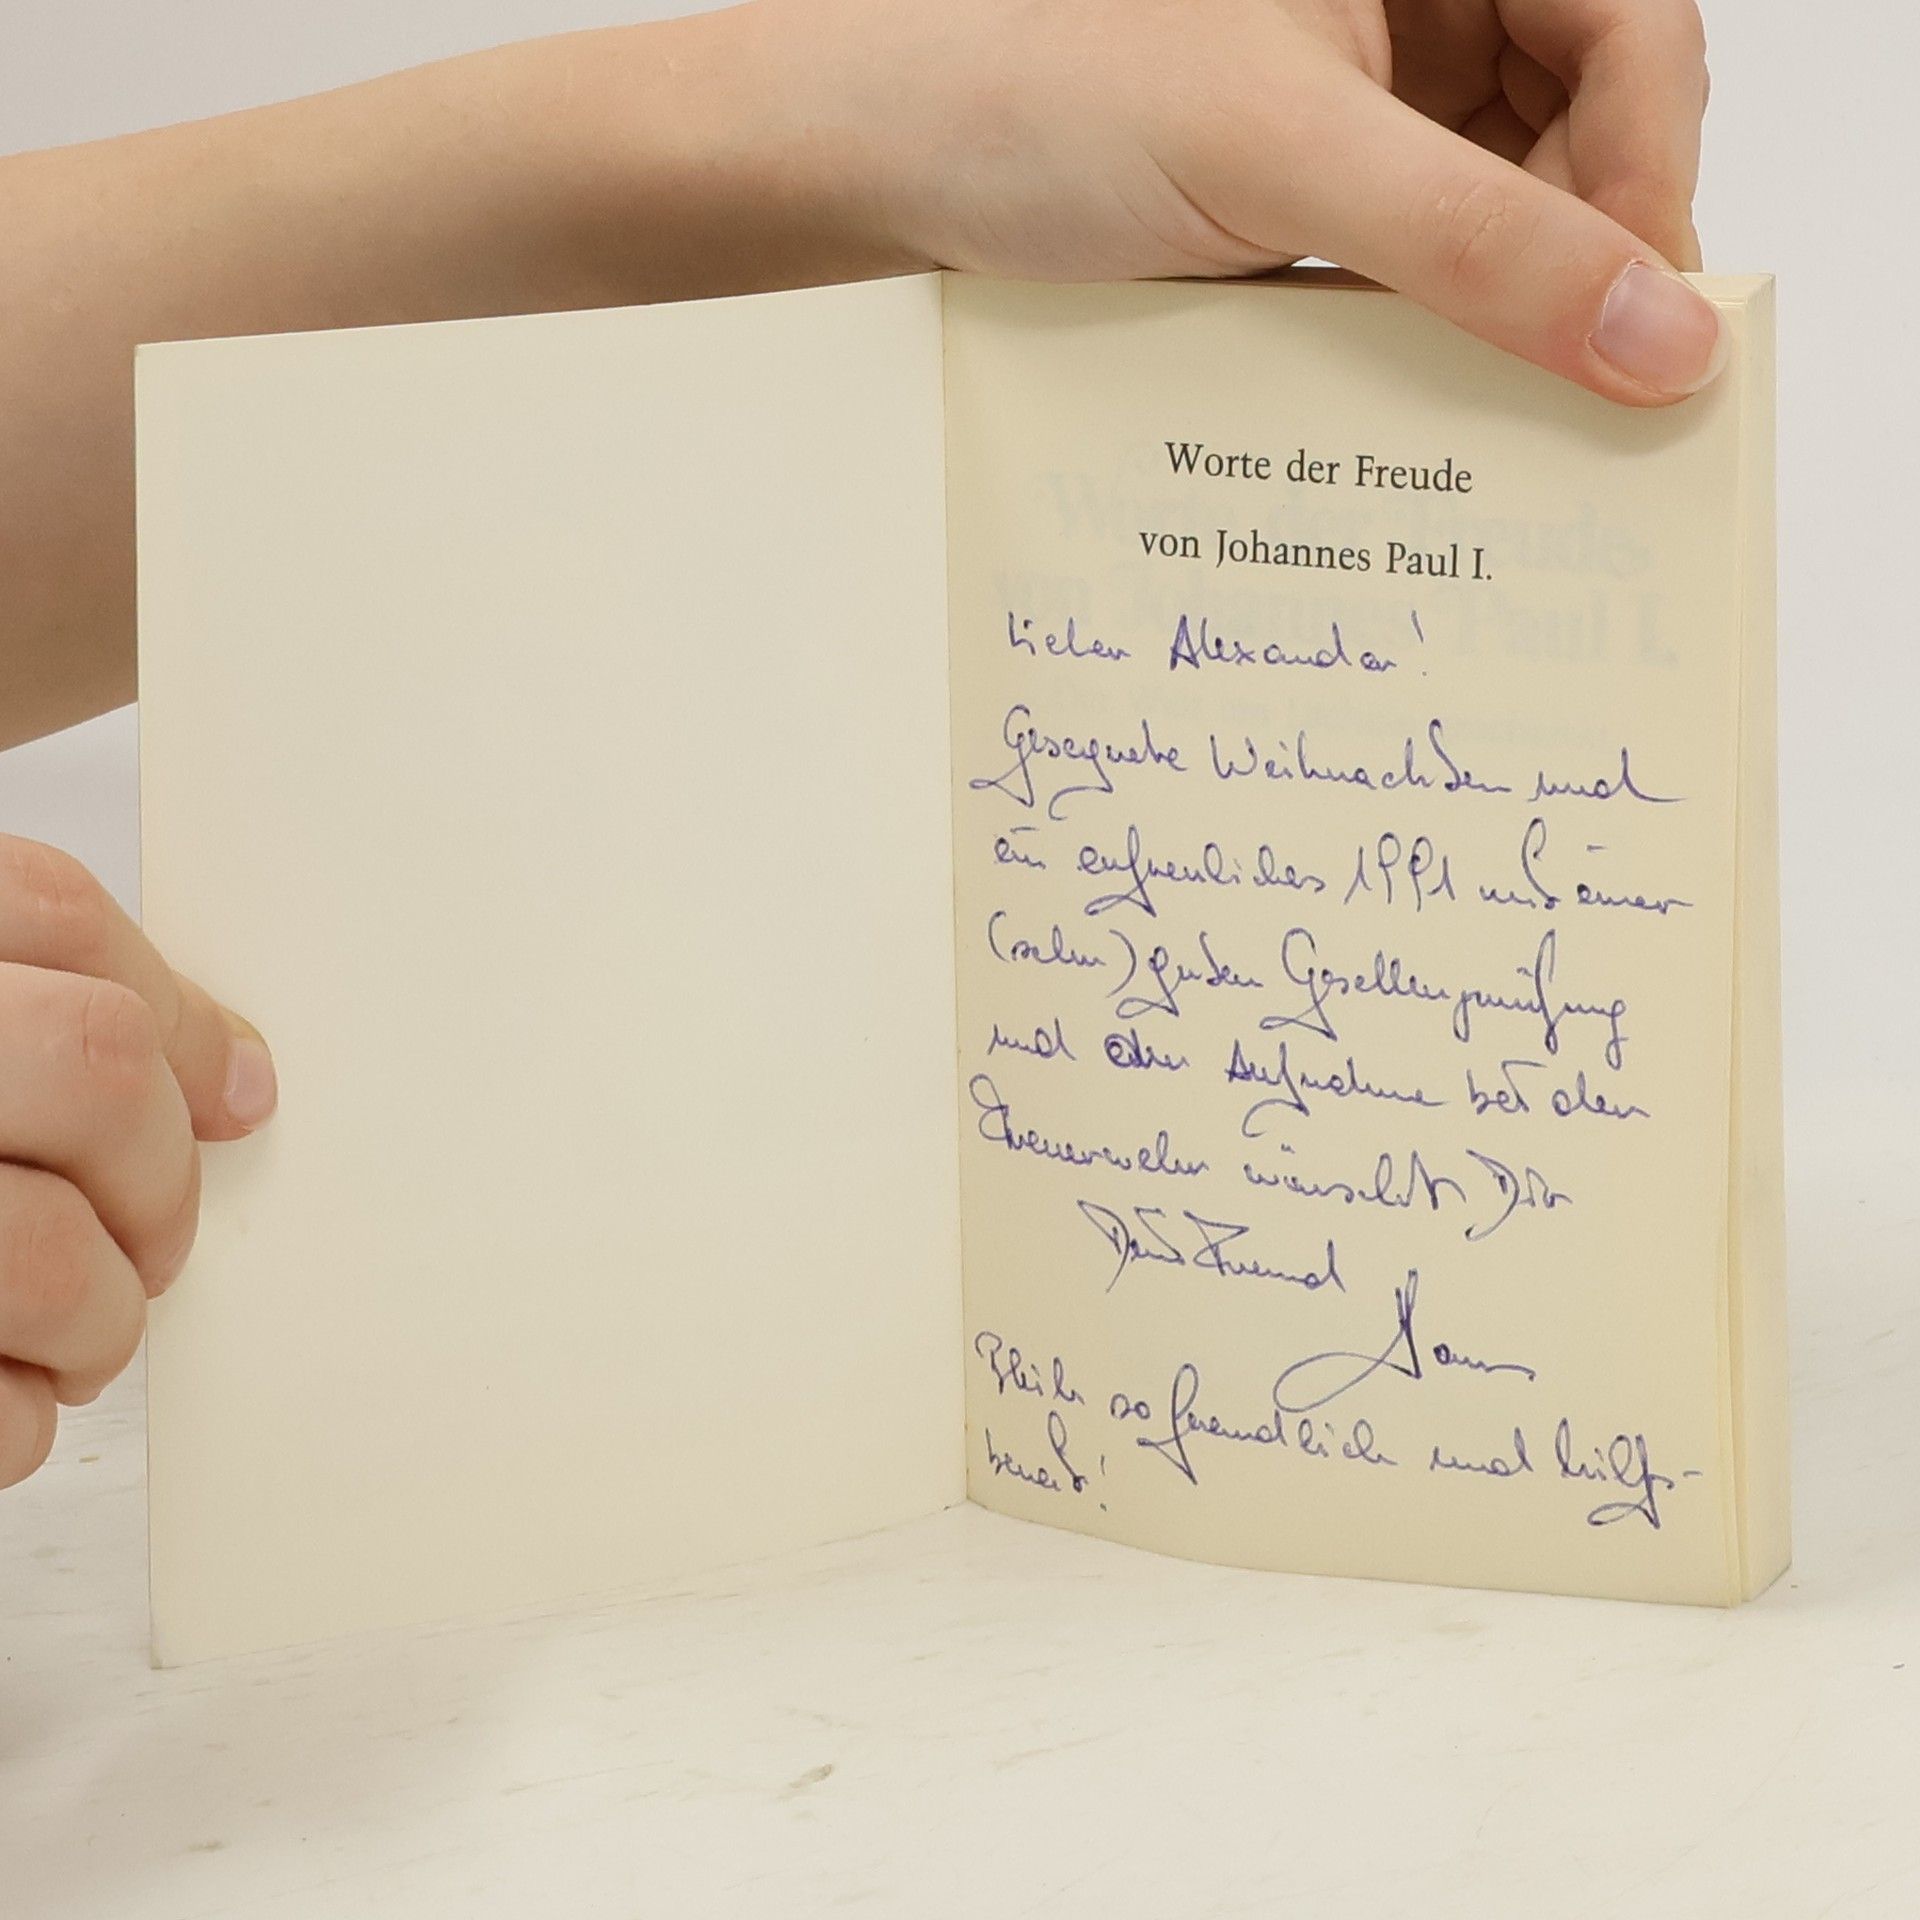 Worte der Freude
von Johannes Paul I.
Lieber Alexander!
Gesegnete Weihnachten und
ein erfreuliches 1991 mit einer
(sehr) guten Gesellenprüfung
und der Aufnahme bei der
Feuerwehr wünscht Dir
Dein Freund
Hans
Bleib so freundlich und hilfs-
bereit!